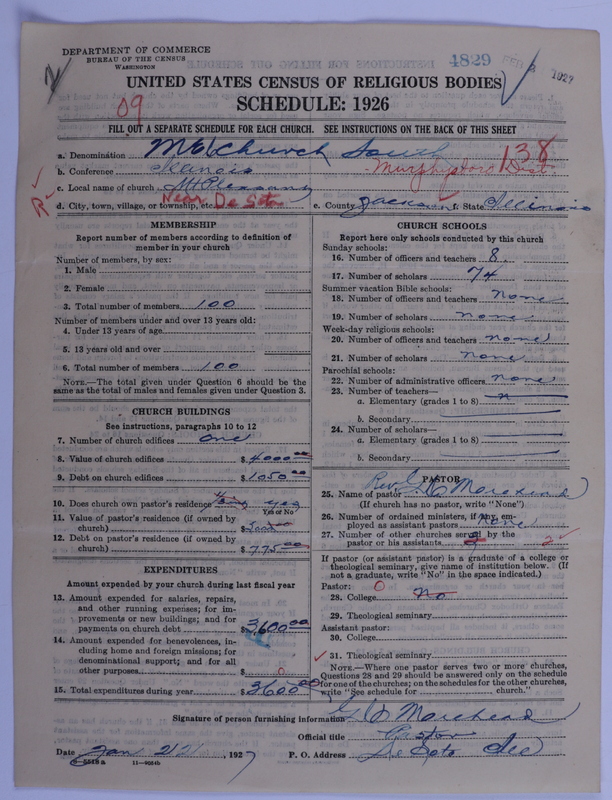 DEPARTMENT OF COMMERCE
BUREAU OF THE CENSUS
WASHINGTON
4829
FEB 1927
UNITED STATES CENSUS OF RELIGIOUS BODIES
SCHEDULE: 1926
09
FILL OUT A SEPARATE SCHEDULE FOR EACH CHURCH. SEE INSTRUCTIONS ON THE BACK OF THIS SHEET
138
a. Denomination M E Church South
b. Conference Illinois Murphysboro Dist.
c. Local name of church Mt Pleasant
d. City, town, village, or township, etc. Near De Soto e. County Jackson f. State Illinois
MEMBERSHIP
Report number of members according to definition of
member in your church
Number of members, by sex:
1. Male
2. Female
3. Total number of members 100
Number of members under and over 13 years old:
4. Under 13 years of age
5. 13 years old and over
6. Total number of members 100
NOTE.—The total given under Question 6 should be the
same as the total of males and females given under Question 3.
CHURCH BUILDINGS
See instructions, paragraphs 10 to 12
7. Number of church edifices one
8. Value of church edifices $4000.00
9. Debt on church edifices $1050.00
10. Does church own pastor's residence yes
Yes or No
11. Value of pastor's residence (if owned by
church) $
12. Debt on pastor's residence (if owned by
church) $775.00
EXPENDITURES
Amount expended by your church during last fiscal year
13. Amount expended for salaries, repairs,
and other running expenses; for im-
provements or new buildings; and for
payments on church debt $3,600.00
14. Amount expended for benevolences, in-
cluding home and foreign missions; for
denominational support; and for all
other purposes $ 0
15. Total expenditures during year $3600.00
CHURCH SCHOOLS
Report here only schools conducted by this church
Sunday schools:
16. Number of officers and teachers 8
17. Number of scholars 74
Summer vacation Bible schools:
18. Number of officers and teachers none
19. Number of scholars none
Week-day religious schools:
20. Number of officers and teachers none
21. Number of scholars none
Parochial schools:
22. Number of administrative officers none
23. Number of teachers—
a. Elementary (grades 1 to 8)
b. Secondary
24. Number of scholars—
a. Elementary (grades 1 to 8)
b. Secondary
PASTOR
25. Name of pastor Rev.
(If church has no pastor, write "None")
26. Number of ordained ministers, if any, em-
ployed as assistant pastors none
27. Number of other churches served by the
pastor or his assistants 2
If pastor (or assistant pastor) is a graduate of a college or
theological seminary, give name of institution below. (If
not a graduate, write "No" in the space indicated.)
Pastor: 0
28. College No
29. Theological seminary
Assistant pastor:
30. College
31. Theological seminary
NOTE.—Where one pastor serves two or more churches,
Questions 28 and 29 should be answered only on the schedule
for one of the churches; on the schedules for the other churches,
write "See schedule for church."
Signature of person furnishing information
Official title Pastor
Date Jan 21, 1927 P. O. Address De Soto Ill
8-5518a 11—9084b